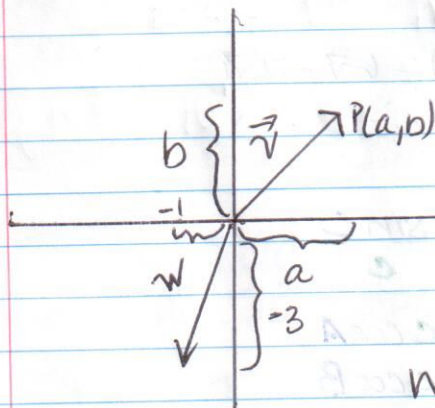 b v⃗ P(a,b)
-1
w a
-3
n